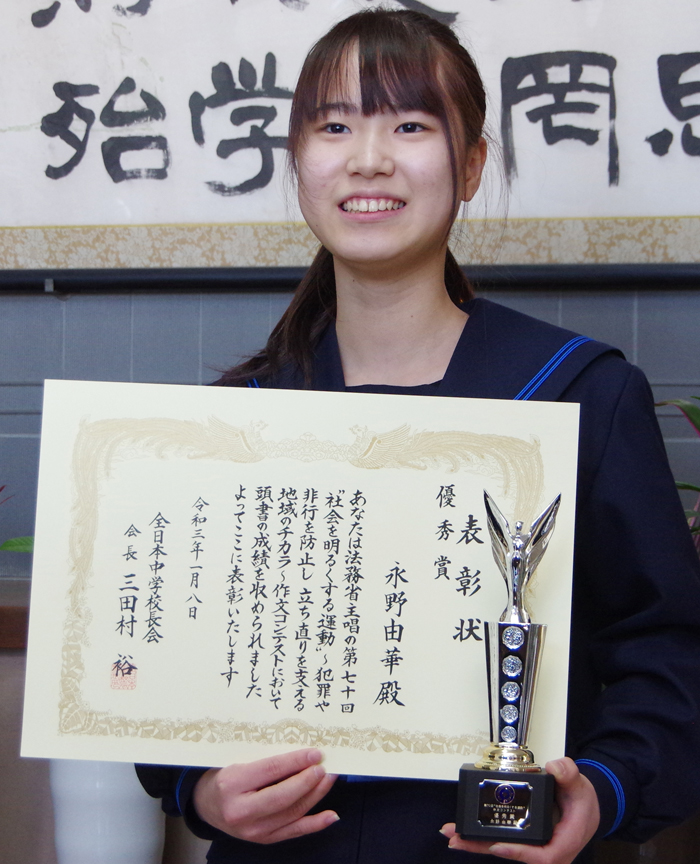 殆学
罔思
表彰状
優秀賞
永野由華殿
あなたは法務省主唱の第七十回
“社会を明るくする運動”～犯罪や
非行を防止し立ち直りを支える
地域のチカラ～作文コンテストにおいて
頭書の成績を収められました
よってここに表彰いたします
令和三年一月八日
全日本中学校長会
会長 三田村 裕
優秀賞